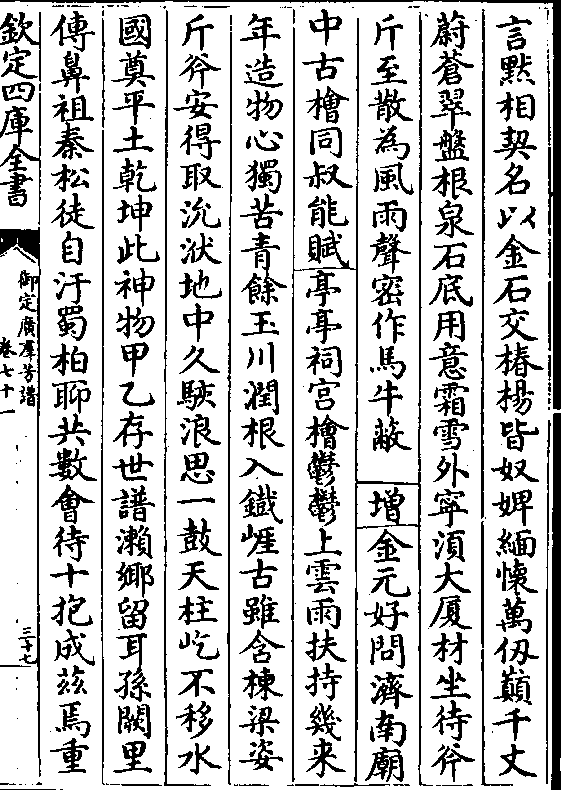 言默相契名以金石交椿楊皆奴婢緬懷萬仭巔千丈
蔚蒼翠盤根泉石底用意霜雪外寧湏大厦材坐待斧
斤至散為風雨聲密作馬牛蔽　增　金元好問濟南廟
中古檜同叔能賦　亭亭祠宫檜鬱鬱上雲雨扶持幾来
年造物心獨苦青餘玉川潤根入鐵崖古雖含棟梁姿
斤斧安得取沇洑地中久駭浪思一鼓天柱屹不移水
國奠平土乾坤此神物甲乙存世譜瀨鄉留耳孫闕里
傳鼻祖秦松徒自汙蜀柏聊共數會待十抱成兹焉重
欽定四庫全書
御定廣羣芳譜
卷七十一
三十七